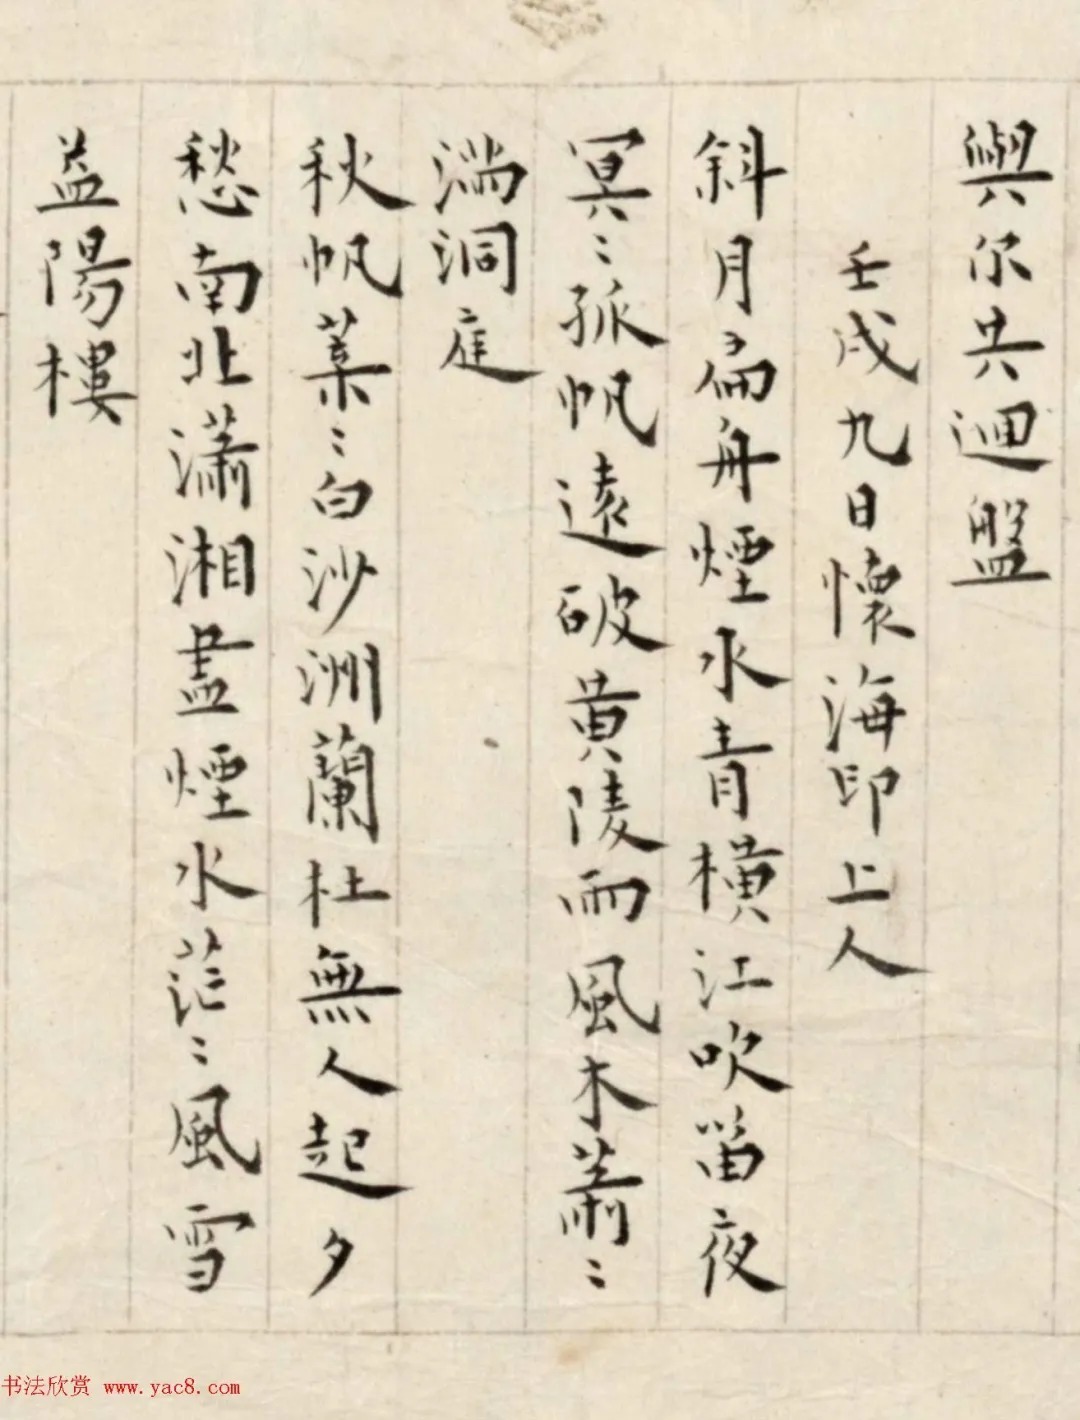 與尔共迴盤
壬戌九日懷海印上人
斜月扁舟煙水青橫江吹笛夜
冥〻孤帆遠破黄陵雨風木蕭〻
滿洞庭
秋帆葉〻白沙洲蘭杜無人起夕
愁南北瀟湘盡煙水茫〻風雪
益陽樓
书法欣赏 www.yac8.com